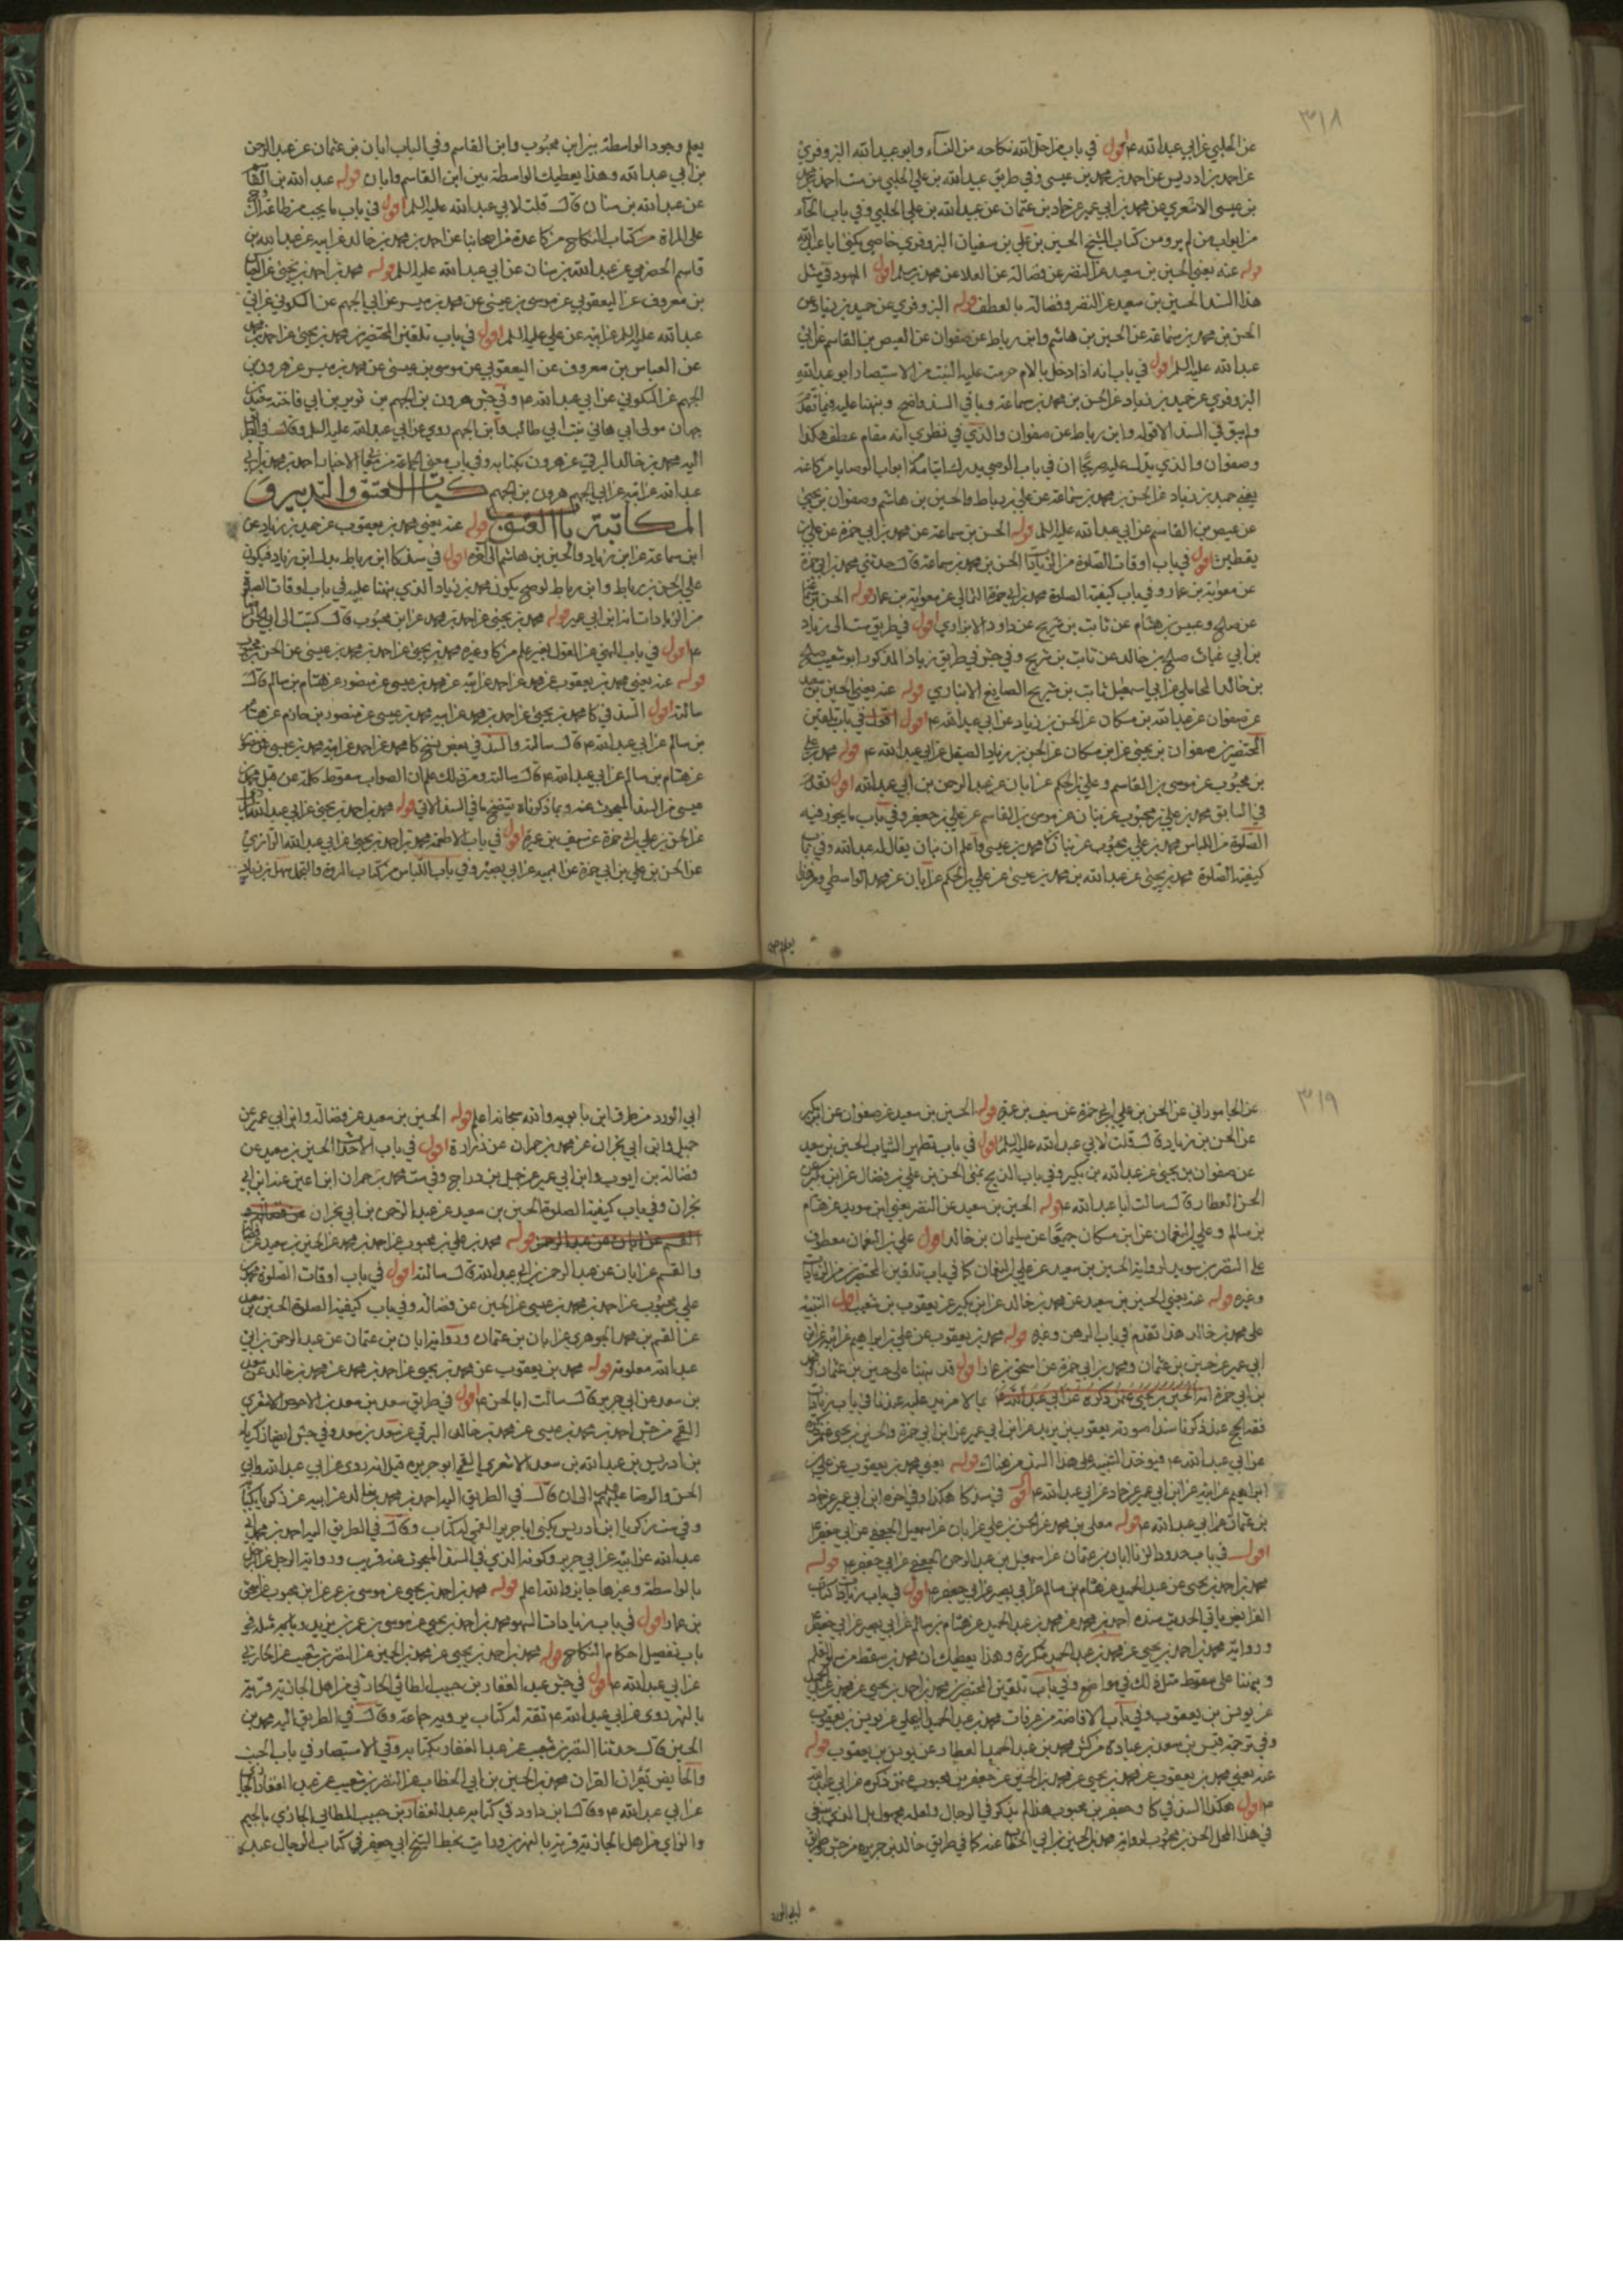 ٣١٨
عن الحلبي عن ابي عبد الله ع اقول في باب من احل الله نكاحه من النساء وابو عبد الله البزوفري
عن احمد بن ادريس عن احمد بن محمد بن عيسى وفي طريق عبيد الله بن علي الحلبي من ست احمد بن محمد
بن عيسى الاشعري عن محمد بن ابي عمير عن حماد بن عثمان عن عبيد الله بن علي الحلبي وفي باب الحاء
من ابواب من لم يرو من كتاب الشيخ الحسين بن علي بن سفيان البزوفري خاصي يكنى ابا عبد الله
قوله عنه يعني الحسين بن سعيد عن النضر عن فضالة عن العلا عن محمد بن مسلم اقول المعهود في مثل
هذا السند الحسين بن سعيد عن النضر وفضالة بالعطف قوله البزوفري عن حميد بن زياد عن
الحسن بن محمد بن سماعة عن الحسين بن هاشم وابن رباط عن صفوان عن العيص بن القاسم عن ابي
عبد الله عليه السلام اقول في باب انه اذا دخل بالام حرمت عليه البنت من الاستبصار ابو عبد الله
البزوفري عن حميد بن زياد عن الحسن بن محمد بن سماعة وباقي السند واضح ونبهنا عليه فيما تقدم
ولم يبق في السند الا قوله وابن رباط عن صفوان والذي في نظري انه مقام عطف هكذا
وصفوان والذي يدلك عليه صريحا ان في باب الوصي يدرك ايتامه من ابواب الوصايا من كا عنه
يعني حميد بن زياد عن الحسن بن محمد بن سماعة عن علي بن رباط والحسين بن هاشم وصفوان بن يحيى
عن عيص بن القاسم عن ابي عبد الله عليه السلام قوله الحسن بن سماعة عن محمد بن ابي حمزة عن علي بن
يقطين اقول في باب اوقات الصلوة من الزيادات الحسن بن محمد بن سماعة قال حدثني محمد بن ابي حمزة
عن معوية بن عمار وفي باب كيفية الصلوة محمد بن ابي حمزة الثمالي عن معوية بن عمار قوله الحسن بن سماعة
عن صالح وعبيس بن هشام عن ثابت بن شريح عن داود الابزاري اقول في طريق ست الى زياد
بن ابي غياث صالح بن خالد عن ثابت بن شريح وفي جش في طريق زياد المذكور ابو شعيب صالح
بن خالد المحاملي عن ابي اسمعيل ثابت بن شريح الصايغ الانباري قوله عنه يعني الحسين بن سعيد
عن صفوان عن عبد الله بن مسكان عن الحسن بن زياد عن ابي عبد الله ع اقول في باب تلقين
المحتضرين صفوان بن يحيى عن ابن مسكان عن الحسن بن زياد الصيقل عن ابي عبد الله ع قوله محمد بن علي
بن محبوب عن موسى بن القاسم وعلي بن الحكم عن ابان عن عبد الرحمن بن ابي عبد الله اقول تقدم
في السابق محمد بن علي بن محبوب عن بنان عن موسى بن القاسم عن علي بن جعفر وفي باب ما يجوز فيه
الصلوة من اللباس محمد بن علي بن محبوب عن بنان بن محمد بن عيسى واعلم ان بنان يقال له عبد الله وفي باب
كيفية الصلوة محمد بن يحيى عن عبد الله بن محمد بن عيسى عن علي بن الحكم عن ابان عن محمد الواسطي ومن هذا
يعلم وجود
يعلم وجود الواسطة بين ابن محبوب وابن القاسم وفي الباب ابان بن عثمان عن عبد الرحمن
بن ابي عبد الله وهذا يعطيك الواسطة بين ابن القاسم وابان قوله عبد الله بن القاسم
عن عبد الله بن سنان قال قلت لابي عبد الله عليه السلام اقول في باب ما يجب من طاعة الزوج
على المراة من كتاب النكاح من كا عدة من اصحابنا عن احمد بن محمد بن خالد عن ابيه عن عبد الله بن
قاسم الحضرمي عن عبد الله بن سنان عن ابي عبد الله عليه السلام قوله محمد بن احمد بن يحيى عن العباس
بن معروف عن اليعقوبي عن موسى بن عيسى عن محمد بن ميسر عن ابي الجهم عن السكوني عن ابي
عبد الله عليه السلام عن ابيه عن علي عليه السلام اقول في باب تلقين المحتضرين محمد بن يحيى عن احمد بن محمد
عن العباس بن معروف عن اليعقوبي عن موسى بن عيسى عن محمد بن ميسر عن هرون بن
الجهم عن السكوني عن ابي عبد الله ع وفي جش هرون بن الجهم بن ثوير بن ابي فاخته سعيد بن
جهمان مولى ام هاني بنت ابي طالب وابن الجهم روى عن ابي عبد الله عليه السلام وقال في الطريق
اليه محمد بن خالد البرقي عن هرون بكتابه
عبد الله عن ابيه عن ابي الجهم هرون بن الجهم كتاب العتق والتدبير و
المكاتبة باب العتق قوله عنه يعني محمد بن يعقوب عن حميد بن زياد عن
ابن سماعة عن ابن زياد والحسين بن هاشم الى اخره اقول في سند كا ابن رباط بدل ابن زياد فيكون
علي بن الحسن بن رباط وابن رباط لوصح يكون محمد بن زياد الذي نبهنا عليه في باب اوقات الصلوة
من الزيادات انه ابن ابي عمير قوله محمد بن يحيى عن احمد بن محمد عن ابن محبوب قال كتبت الى ابي الحسن
ع اقول في باب النهي عن القول بغير علم من كا وغيره محمد بن يحيى عن احمد بن محمد بن عيسى عن الحسن بن محبوب
قوله عنه يعني محمد بن يعقوب عن محمد عن احمد عن ابيه عن محمد بن عيسى عن منصور عن هشام بن سالم قال
سالته اقول السند في كا محمد بن يحيى عن احمد بن محمد عن ابيه محمد بن عيسى عن منصور بن حازم عن هشام
بن سالم عن ابي عبد الله ع قال سالته والسند في بعض نسخ كا محمد عن احمد عن ابيه محمد بن عيسى عن منصور
عن هشام بن سالم عن ابي عبد الله ع قال سالته ومن ذلك علم ان الصواب سقوط كلمة عن قبل محمد بن
عيسى من السند المبحوث عنه وبما ذكرناه يتضح ما في السند الاتي قوله محمد بن احمد بن يحيى عن ابي عبد الله الرازي
عن الحسن بن علي بن ابي حمزة عن سيف بن عميرة اقول في باب الاطعمة محمد بن احمد بن يحيى عن ابي عبد الله الرازي
عن الحسن بن علي بن ابي حمزة عن ابي بصير وفي باب اللباس من كتاب المروة والتجمل سهل بن زياد
٣١٩
عن الجاموراني عن الحسن بن علي بن ابي حمزة عن سيف بن عميرة قوله الحسين بن سعيد عن صفوان عن ابن بكير
عن الحسن بن زياد قال قلت لابي عبد الله عليه السلام اقول في باب تطهير الثياب الحسين بن سعيد
عن صفوان بن يحيى عن عبد الله بن بكير وفي باب الذبح بمنى الحسن بن علي بن فضال عن ابن بكير عن
الحسن العطار قال سالت ابا عبد الله ع قوله الحسين بن سعيد عن النضر يعني ابن سويد عن هشام
بن سالم وعلي بن النعمان عن ابن مسكان جميعا عن سليمان بن خالد اقول علي بن النعمان معطوف
على النضر بن سويد لرواية الحسين بن سعيد عن علي بن النعمان كما في باب تلقين المحتضرين من الزيادات
وغيره قوله عنه يعني الحسين بن سعيد عن محمد بن خالد عن ابن بكير عن يعقوب بن شعيب اقول التنبيه
على محمد بن خالد هذا تقدم في باب الرهن وغيره قوله محمد بن يعقوب عن علي بن ابراهيم عن ابيه عن ابن
ابي عمير عن حسين بن عثمان ومحمد بن ابي حمزة عن اسحق بن عمار اقول قد نبهنا على حسين بن عثمان ومحمد
بن ابي حمزة بما لا مزيد عليه عندنا في باب زيادات
فقه الحج عند ذكرنا سندا صورته يعقوب بن يزيد عن ابن ابي عمير عن ابن ابي حمزة والحسين بن يحيى عمن ذكره
عن ابي عبد الله ع فيوخذ التنبيه على هذا السند من هناك قوله يعني محمد بن يعقوب عن علي بن
ابراهيم عن ابيه عن ابن ابي عمير عن حماد عن ابي عبد الله ع اقول في سند كا هكذا وفي اخره ابن ابي عمير عن حماد
بن عثمان عن ابي عبد الله ع قوله معلى بن محمد عن الحسن بن علي عن ابان عن اسمعيل الجعفي عن ابي جعفر ع
اقول في باب حدود الزنا ابان بن عثمان عن اسمعيل بن عبد الرحمن الجعفي عن ابي جعفر ع قوله
محمد بن احمد بن يحيى عن عبد الحميد عن هشام بن سالم عن ابي بصير عن ابي جعفر ع اقول في باب زيادات كتاب
الفرايض ياتي الحديث سنده احمد بن محمد عن محمد بن عبد الحميد عن هشام بن سالم عن ابي بصير عن ابي جعفر ع
ورواية محمد بن احمد بن يحيى عن محمد بن عبد الحميد متكررة وهذا يعطيك ان محمد بن سقط من القلم
ونبهنا على سقوط مثل ذلك في مواضع وفي باب تلقين المحتضرين محمد بن احمد بن يحيى عن محمد بن عبد الحميد
عن يونس بن يعقوب وفي باب الافاضة من عرفات محمد بن عبد الحميد البجلي عن يونس بن يعقوب
وفي ترجمة قيس بن سعد بن عبادة من كش محمد بن عبد الحميد العطار عن يونس بن يعقوب قوله
عنه يعني محمد بن يعقوب عن محمد بن يحيى عن محمد بن الحسين عن جعفر بن محبوب عمن ذكره عن ابي عبد الله
ع اقول هكذا السند في كا وجعفر بن محبوب هذا لم يذكر في الرجال ولعله مجهول بل الذي ينبغي
في هذا المحل الحسن بن محبوب لرواية محمد بن الحسين بن ابي الخطاب عنه كما في طريق خالد بن جرير من جش
ابي الورد
ابي الورد من طرق ابن بابويه والله سبحانه اعلم قوله الحسين بن سعيد عن فضالة وابن ابي عمير عن
جميل وابن ابي نجران عن محمد بن حمران عن زرارة اقول في باب الاحداث الحسين بن سعيد عن
فضالة بن ايوب وابن ابي عمير عن جميل بن دراج وفي ست محمد بن حمران ابن اعين عنه ابن ابي
نجران وفي باب كيفية الصلوة الحسين بن سعيد عن عبد الرحمن بن ابي نجران عن فضالة و
القسم عن ابان عن عبد الرحمن قوله محمد بن علي بن محبوب عن احمد بن محمد عن الحسين بن سعيد عن فضالة
والقسم عن ابان عن عبد الرحمن بن ابي عبد الله قال سالته اقول في باب اوقات الصلوة محمد بن
علي بن محبوب عن احمد بن محمد بن عيسى عن الحسين عن فضالة وفي باب كيفية الصلوة الحسين بن سعيد
عن القسم بن محمد الجوهري عن ابان بن عثمان ورواية ابان بن عثمان عن عبد الرحمن بن ابي
عبد الله معلومة قوله محمد بن يعقوب عن محمد بن يحيى عن احمد بن محمد عن محمد بن خالد عن سعد
بن سعد عن ابي جرير قال سالت ابا الحسن ع اقول في طريق سعد بن سعد بن الاحوص الاشعري
القمي من جش احمد بن محمد بن عيسى عن محمد بن خالد البرقي عن سعد بن سعد وفي جش ايضا زكريا
بن ادريس بن عبد الله بن سعد الاشعري القمي ابو جرير قيل انه روى عن ابي عبد الله وابي
الحسن والرضا عليهم السلام الى ان قال في الطريق اليه احمد بن محمد بن خالد عن ابيه عن زكريا بكتابه
وفي ست زكريا ابن ادريس يكنى ابا جرير القمي له كتاب وقال في الطريق اليه احمد بن محمد بن ابي
عبد الله عن ابيه عن ابي جرير وكونه الذي في السند المبحوث عنه قريب ورواية الرجل عن الرجل
بالواسطة وغيرها جايز والله اعلم قوله محمد بن احمد بن يحيى عن موسى بن عمر عن ابن محبوب عن اسحق
بن عمار اقول في باب زيادات السهو محمد بن احمد بن يحيى عن موسى بن عمر بن يزيد
باب تفصيل احكام النكاح قوله محمد بن احمد بن يحيى عن محمد بن الحسين عن النضر بن شعيب عن الحارثي
عن ابي عبد الله ع اقول في جش عبد الغفار بن حبيب الطائي الحارثي من اهل الجازية قرية
بالنهرين روى عن ابي عبد الله ع ثقة له كتاب يرويه جماعة وقال في الطريق اليه محمد بن
الحسين قال حدثنا النضر بن شعيب عن عبد الغفار بكتابه وفي الاستبصار في باب الجنب
والحايض تقران القران محمد بن الحسين بن ابي الخطاب عن النضر بن شعيب عن عبد الغفار الجازي
عن ابي عبد الله ع وقال ابن داود في كتابه عبد الغفار بن حبيب الطائي الجازي بالجيم
والزاي من اهل الجازية قرية بالنهرين ورايت بخط الشيخ ابي جعفر في كتاب الرجال عبد